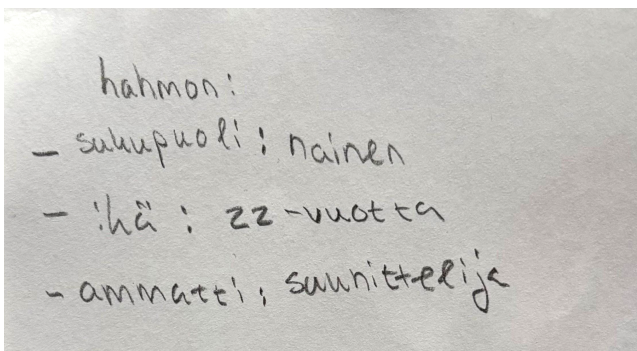 hahmon:
- sukupuoli: nainen
- ikä: 22-vuotta
- ammatti: suunittelija